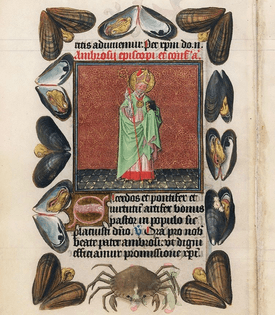 ettis adiuvemur. Per xpm do. n.
Ambrosij episcopi et confes. a.
Sacerdos et pontifex et
virtutum artifex bonus
pastor in populo sic
placuisti dno. V Ora pro nob
beate pater ambrosi. ut digni
efficiamur promissione xpi.